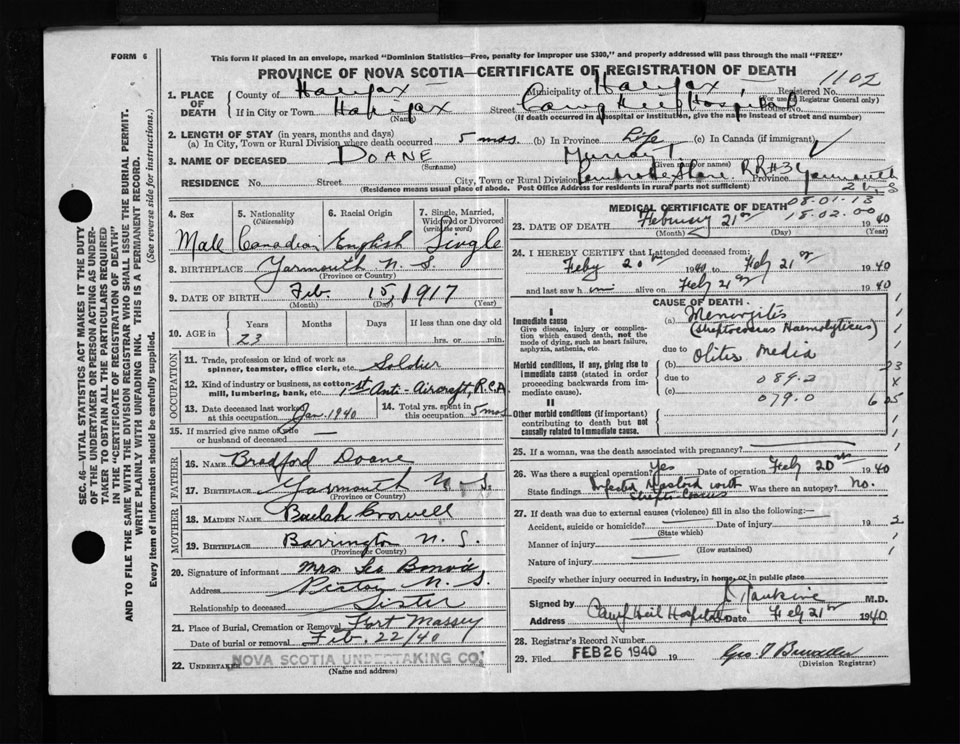 FORM 6
This form if placed in an envelope, marked "Dominion Statistics—Free, penalty for improper use $300," and properly addressed will pass through the mail "FREE"
PROVINCE OF NOVA SCOTIA—CERTIFICATE OF REGISTRATION OF DEATH
1102
1. PLACE OF DEATH
County of Halifax
Municipality of Halifax
Registered No.
(For use of Registrar General only)
If in City or Town Halifax
(Name)
Street Camp Hill Hospital House No.
(If death occurred in a hospital or institution, give the name instead of street and number)
2. LENGTH OF STAY (in years, months and days)
(a) In City, Town or Rural Division where death occurred 5 mos. (b) In Province Life (c) In Canada (if immigrant)
3. NAME OF DECEASED DOANE Murray T
(Surname) (Given name or names)
RESIDENCE No. Street City, Town or Rural Division RR#3 Province Yarmouth
N S
(Residence means usual place of abode. Post Office Address for residents in rural parts not sufficient)
4. Sex
Male
5. Nationality
(Citizenship)
Canadian
6. Racial Origin
English
7. Single, Married, Widowed or Divorced
(write the word)
Single
8. BIRTHPLACE Yarmouth N. S.
(Province or Country)
9. DATE OF BIRTH Feb. 15, 1917
(Month) (Day) (Year)
10. AGE in
Years Months Days If less than one day
23 hrs. or min.
OCCUPATION
11. Trade, profession or kind of work as spinner, teamster, office clerk, etc. Soldier
12. Kind of industry or business, as cotton-mill, lumbering, bank, etc. 1st Anti-Aircraft, R.C.A
13. Date deceased last worked at this occupation Jan. 1940
14. Total yrs. spent in this occupation 5 mos
15. If married give name of wife or husband of deceased —
FATHER
16. NAME Bradford Doane
17. BIRTHPLACE Yarmouth N. S.
(Province or Country)
MOTHER
18. MAIDEN NAME Beulah Crowell
19. BIRTHPLACE Barrington N. S.
(Province or Country)
20. Signature of informant Mrs. Leo
Address Pictou N. S.
Relationship to deceased Sister
21. Place of Burial, Cremation or Removal Fort Massey
Date of burial or removal Feb. 22/40
22. UNDERTAKER NOVA SCOTIA UNDERTAKING CO.
(Name and address)
MEDICAL CERTIFICATE OF DEATH
08-01-13
18.02.00
23. DATE OF DEATH February 21st 1940
(Month) (Day) (Year)
24. I HEREBY CERTIFY that I attended deceased from
Feby 20th 1940 to Feby 21st 1940
and last saw him alive on Feby 21st 1940
CAUSE OF DEATH
I
Immediate cause
Give disease, injury or complication which caused death, not the mode of dying, such as heart failure, asphyxia, asthenia, etc.
(a) Meningitis
(Streptococcus Haemolyticus)
due to Otitis Media
Morbid conditions, if any, giving rise to immediate cause (stated in order proceeding backwards from immediate cause).
(b)
due to 089.2
(c) 079.0
II
Other morbid conditions (if important) contributing to death but not causally related to immediate cause.
25. If a woman, was the death associated with pregnancy?
26. Was there a surgical operation? Yes Date of operation Feby 20th 1940
State findings Infected Mastoid with Strepto Coccus Was there an autopsy? No.
27. If death was due to external causes (violence) fill in also the following:—
Accident, suicide or homicide? Date of injury 19
(State which)
Manner of injury
(How sustained)
Nature of injury
Specify whether injury occurred in industry, in home, or in public place
Signed by M.D.
Address Camp Hill Hospital Date Feby 21st 1940
28. Registrar's Record Number
29. Filed FEB 26 1940 19
(Division Registrar)
SEC. 46—VITAL STATISTICS ACT MAKES IT THE DUTY OF THE UNDERTAKER OR PERSON ACTING AS UNDERTAKER TO OBTAIN ALL THE PARTICULARS REQUIRED IN THE "CERTIFICATE OF REGISTRATION OF DEATH" AND TO FILE THE SAME WITH THE DIVISION REGISTRAR WHO SHALL ISSUE THE BURIAL PERMIT.
WRITE PLAINLY WITH UNFADING INK. THIS IS A PERMANENT RECORD.
Every item of information should be carefully supplied. (See reverse side for instructions.)